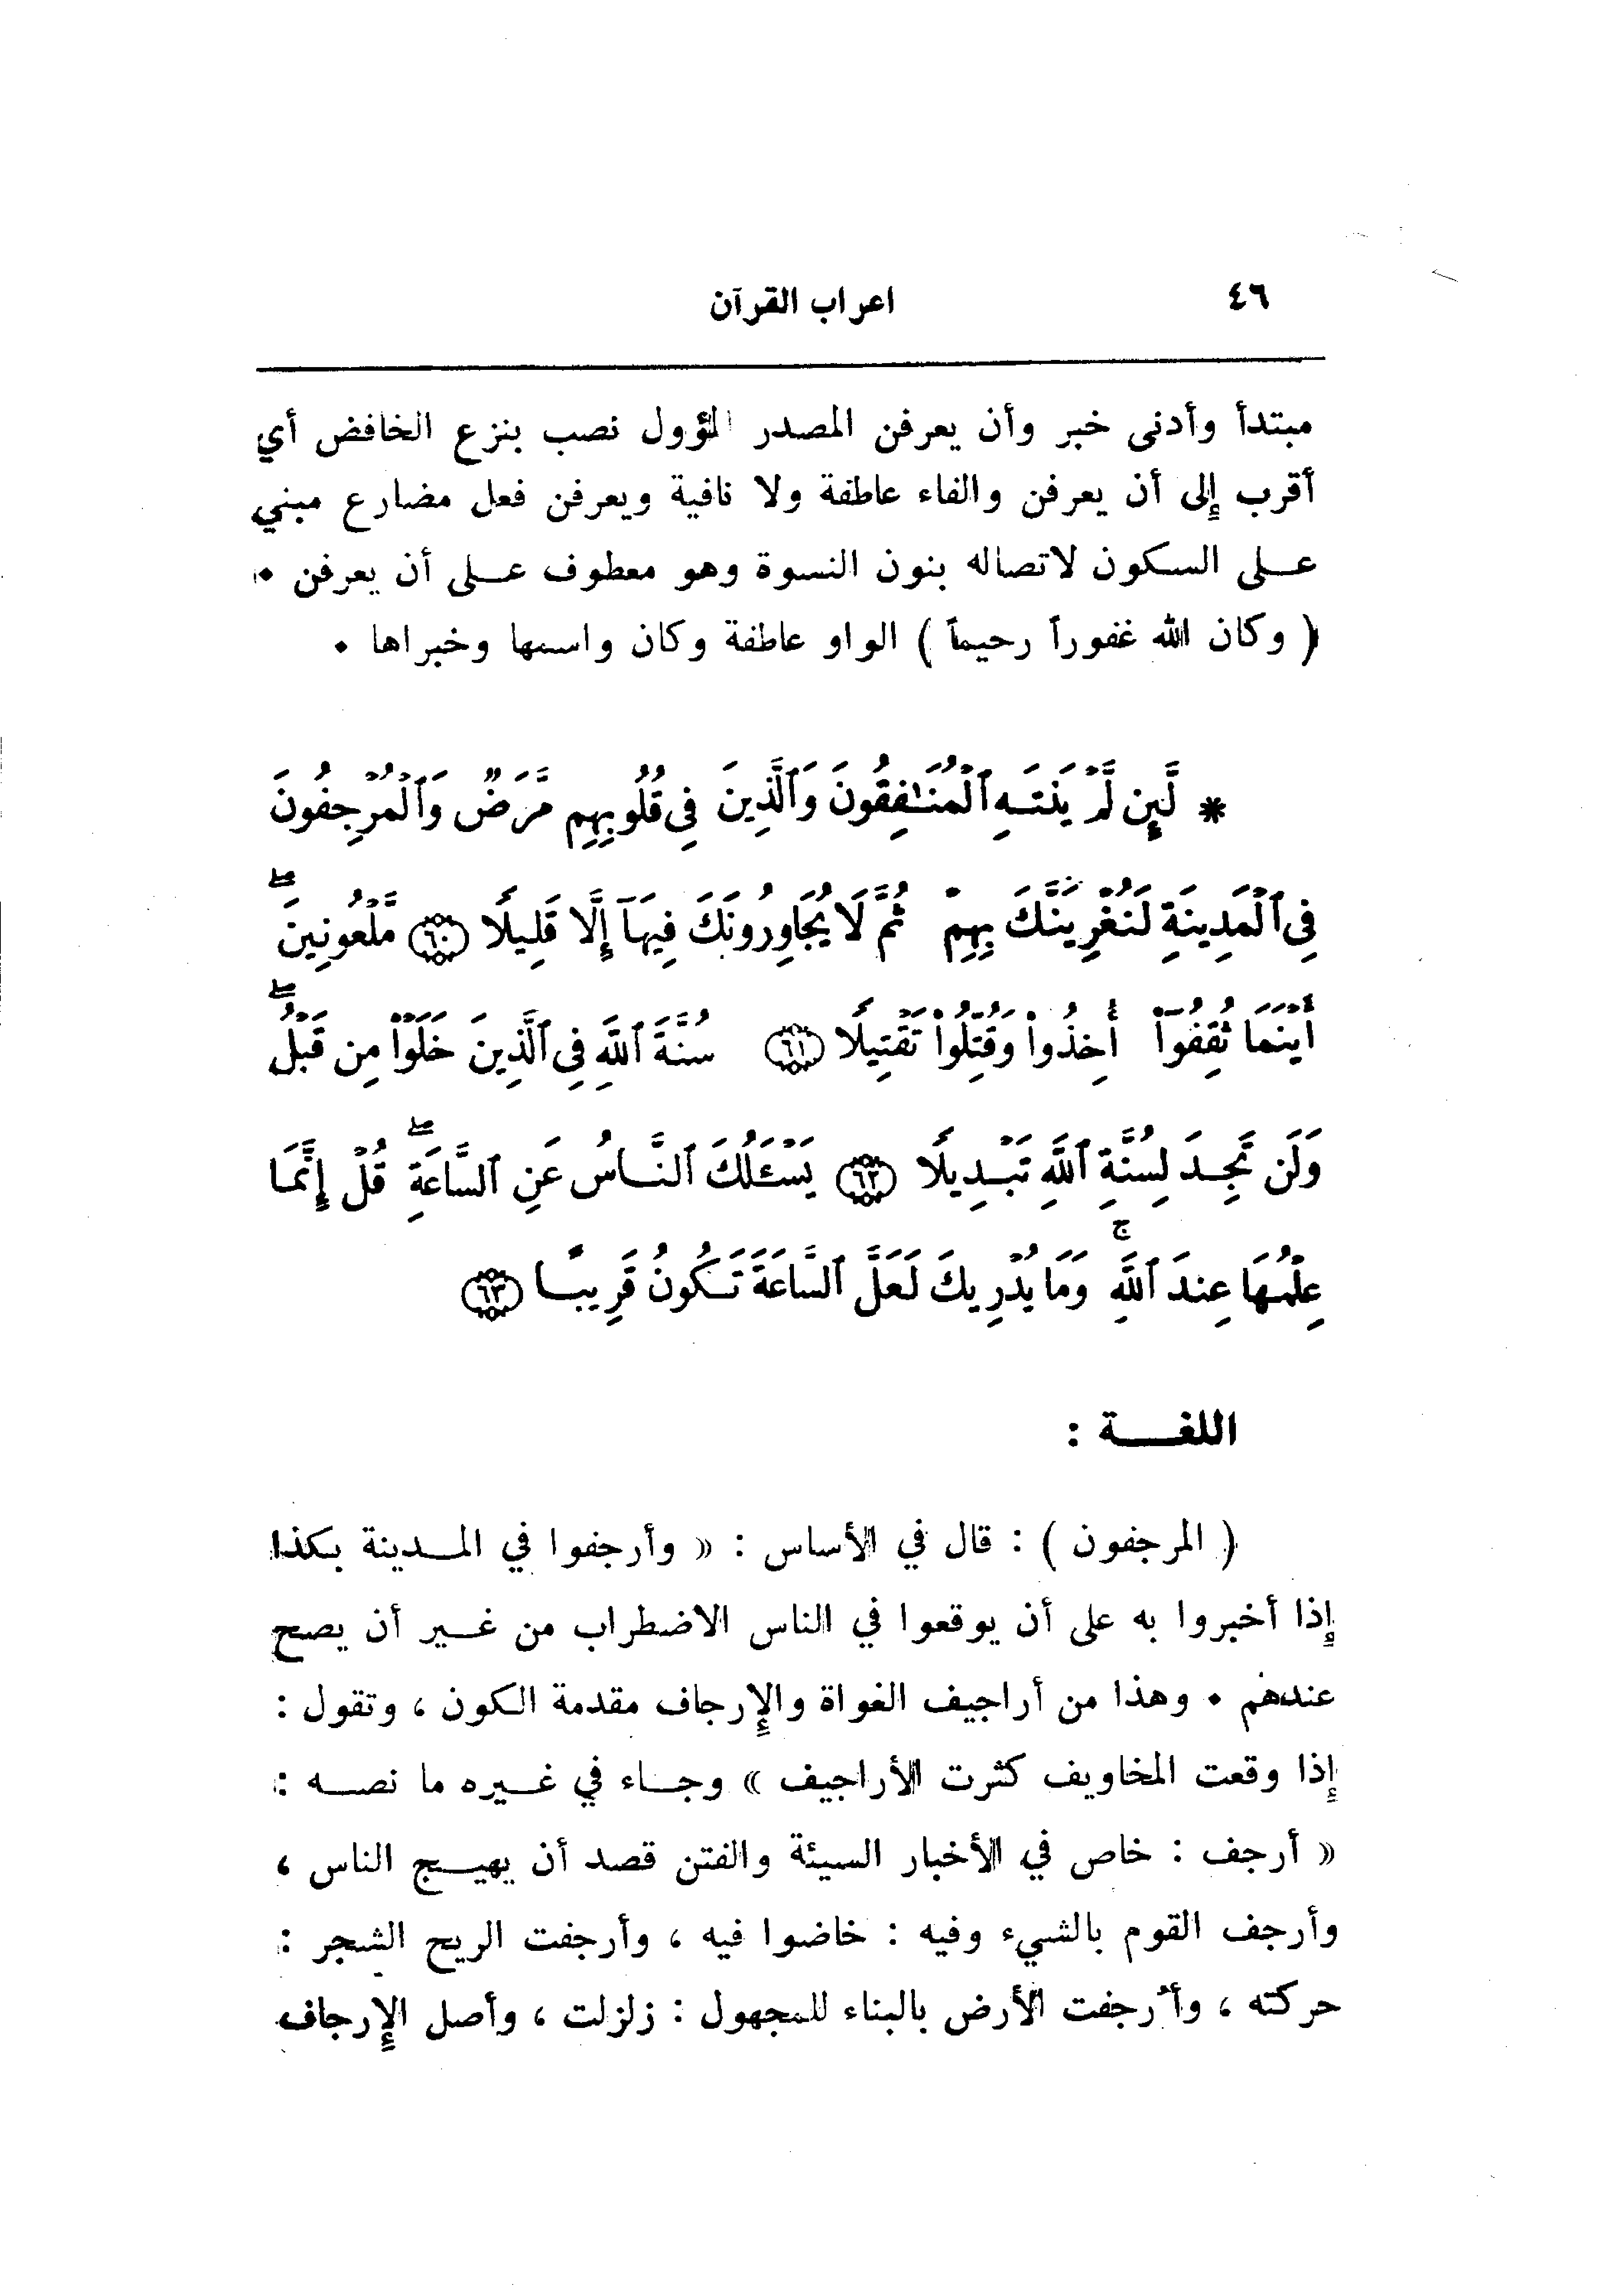 ٤٦ اعراب القرآن
مبتدأ وأدنى خبر وأن يعرفن المصدر المؤول نصب بنزع الخافض أي
أقرب إلى أن يعرفن والفاء عاطفة ولا نافية ويعرفن فعل مضارع مبني
عـلى السكون لاتصاله بنون النسوة وهو معطوف عـلى أن يعرفن ٠
( وكان الله غفوراً رحيماً ) الواو عاطفة وكان واسمها وخبراها ٠
* لَّئِن لَّمْ يَنتَهِ ٱلْمُنَـٰفِقُونَ وَٱلَّذِينَ فِى قُلُوبِهِم مَّرَضٌ وَٱلْمُرْجِفُونَ
فِى ٱلْمَدِينَةِ لَنُغْرِيَنَّكَ بِهِمْ ثُمَّ لَا يُجَاوِرُونَكَ فِيهَآ إِلَّا قَلِيلًا ﴿٦٠﴾ مَّلْعُونِينَۖ
أَيْنَمَا ثُقِفُوٓا۟ أُخِذُوا۟ وَقُتِّلُوا۟ تَقْتِيلًا ﴿٦١﴾ سُنَّةَ ٱللَّهِ فِى ٱلَّذِينَ خَلَوْا۟ مِن قَبْلُۖ
وَلَن تَجِدَ لِسُنَّةِ ٱللَّهِ تَبْدِيلًا ﴿٦٢﴾ يَسْـَٔلُكَ ٱلنَّاسُ عَنِ ٱلسَّاعَةِۖ قُلْ إِنَّمَا
عِلْمُهَا عِندَ ٱللَّهِۚ وَمَا يُدْرِيكَ لَعَلَّ ٱلسَّاعَةَ تَكُونُ قَرِيبًا ﴿٦٣﴾
اللغـــة :
( المرجفون ) : قال في الأساس : « وأرجفوا في المـدينة بكذا
إذا أخبروا به على أن يوقعوا في الناس الاضطراب من غـير أن يصح
عندهم ٠ وهذا من أراجيف الغواة والإرجاف مقدمة الكون ، وتقول :
إذا وقعت المخاويف كثرت الأراجيف » وجـاء في غـيره ما نصـه :
« أرجف : خاص في الأخبار السيئة والفتن قصد أن يهيـج الناس ،
وأرجف القوم بالشيء وفيه : خاضوا فيه ، وأرجفت الريح الشجر :
حركته ، وأُرجفت الأرض بالبناء للمجهول : زلزلت ، وأصل الإرجاف